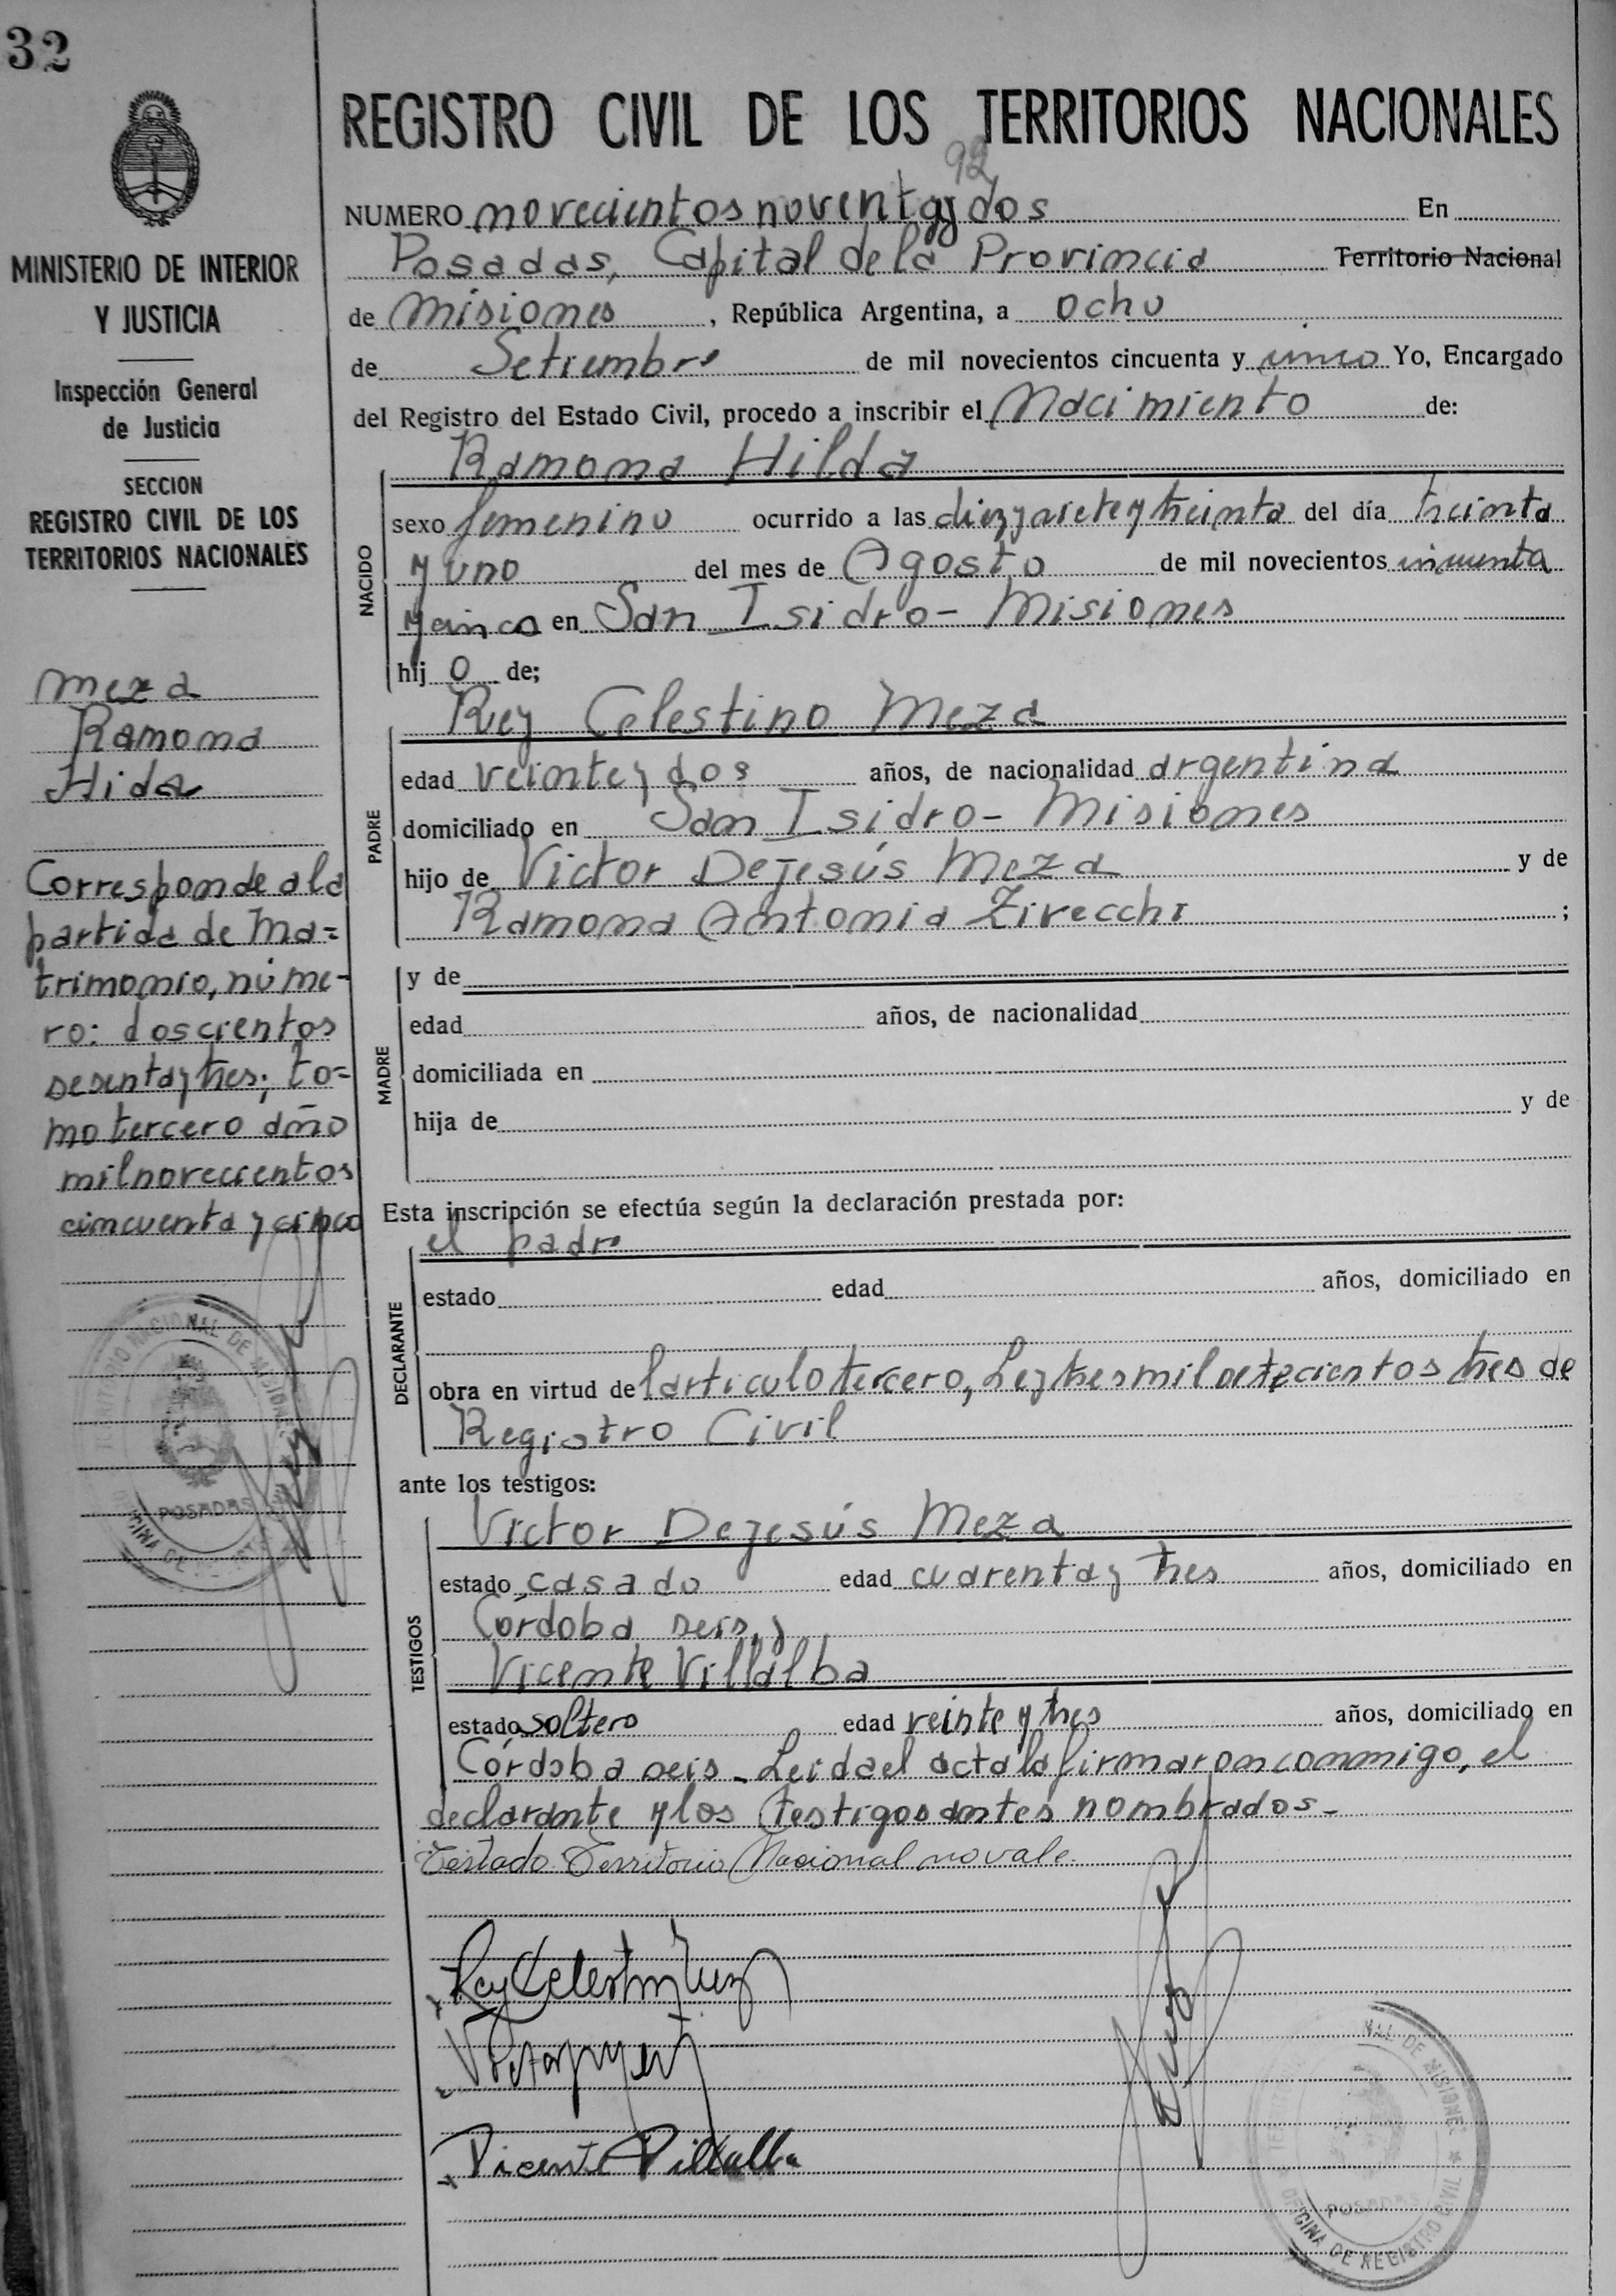 32
MINISTERIO DE INTERIOR
Y JUSTICIA
Inspección General
de Justicia
SECCION
REGISTRO CIVIL DE LOS
TERRITORIOS NACIONALES
Meza
Ramona
Hida
Corresponde a la
partida de Ma=
trimonio, núme-
ro: doscientos
sesenta y tres; to=
mo tercero año
mil novecientos
cincuenta y cinco
REGISTRO CIVIL DE LOS TERRITORIOS NACIONALES
92
NUMERO novecientos noventa y dos En
Posadas, Capital de la Provincia Territorio Nacional
de Misiones, República Argentina, a ocho
de Setiembre de mil novecientos cincuenta y cinco Yo, Encargado
del Registro del Estado Civil, procedo a inscribir el Nacimiento de:
Ramona Hilda
NACIDO
sexo femenino ocurrido a las diez y siete y treinta del día treinta
y uno del mes de Agosto de mil novecientos cincuenta
y cinco en San Isidro - Misiones
hij o de;
Rey Celestino Meza
PADRE
edad veinte y dos años, de nacionalidad argentina
domiciliado en San Isidro - Misiones
hijo de Victor Dejesús Meza y de
Ramona Antonia Zivecchi ;
MADRE
y de
edad años, de nacionalidad
domiciliada en
hija de y de
Esta inscripción se efectúa según la declaración prestada por:
el padre
DECLARANTE
estado edad años, domiciliado en
obra en virtud del articulo tercero, Ley tres mil setecientos tres de
Registro Civil
ante los testigos:
Victor Dejesús Meza
TESTIGOS
estado casado edad cuarenta y tres años, domiciliado en
Córdoba seis, y
Vicente Villalba
estado soltero edad veinte y tres años, domiciliado en
Córdoba seis - Leida el acta la firmaron conmigo, el
declarante y los testigos antes nombrados -
Testado Territorio Nacional no vale.
Rey Celestino Meza
Vicente Villalba
POSADAS
OFICINA DE REGISTRO CIVIL
POSADAS